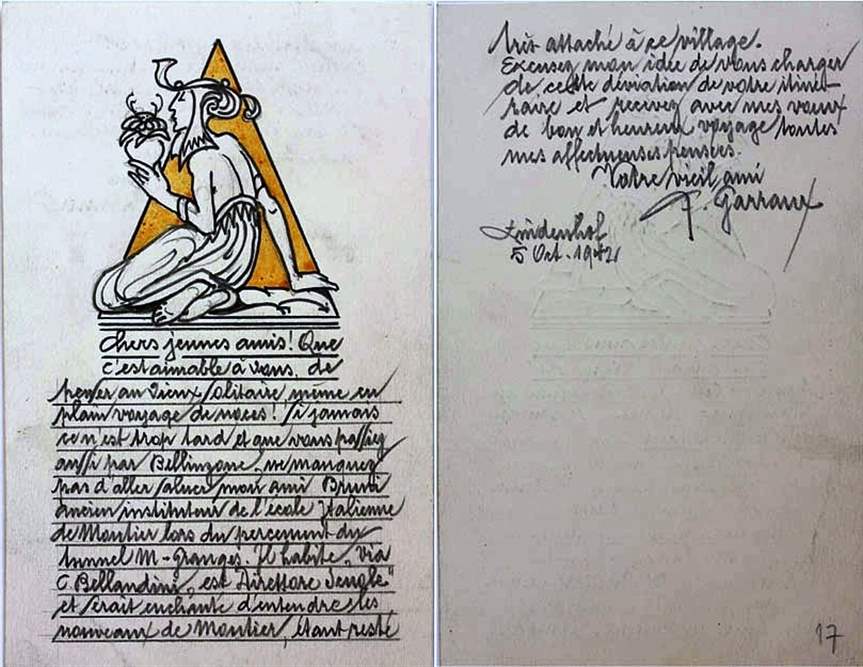 Chers jeunes amis! Que
c'est aimable à vous, de
penser au vieux solitaire même en
plain voyage de noces! Si jamais
ce n'est trop tard et que vous passiez
aussi par Bellinzone, ne manquez
pas d'aller saluer mon ami Bruni
ancien instituteur de l'école italienne
de Moutier lors du percement du
tunnel M-Granges. Il habite, via
C Bellandini, est "Direttore
et serait enchanté d'entendre les
nouveaux de Moutier, étant resté
très attaché à ce village.
Excusez mon idée de vous charger
de cette déviation de votre itiné-
raire et recevez avec mes vœux
de bon et heureux voyage toutes
mes affectueuses pensées.
Votre vieil ami
Garraux
Lindenhof
5 Oct. 1942
17